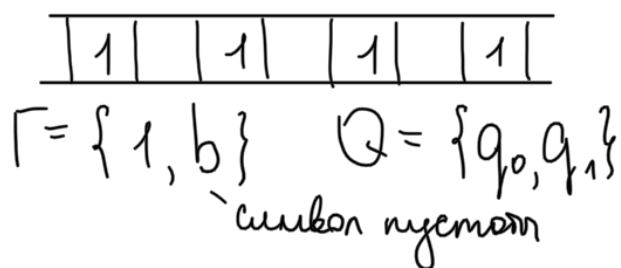 1 1 1 1
Γ = {1, b} Q = {q₀, q₁}
символ пустоты